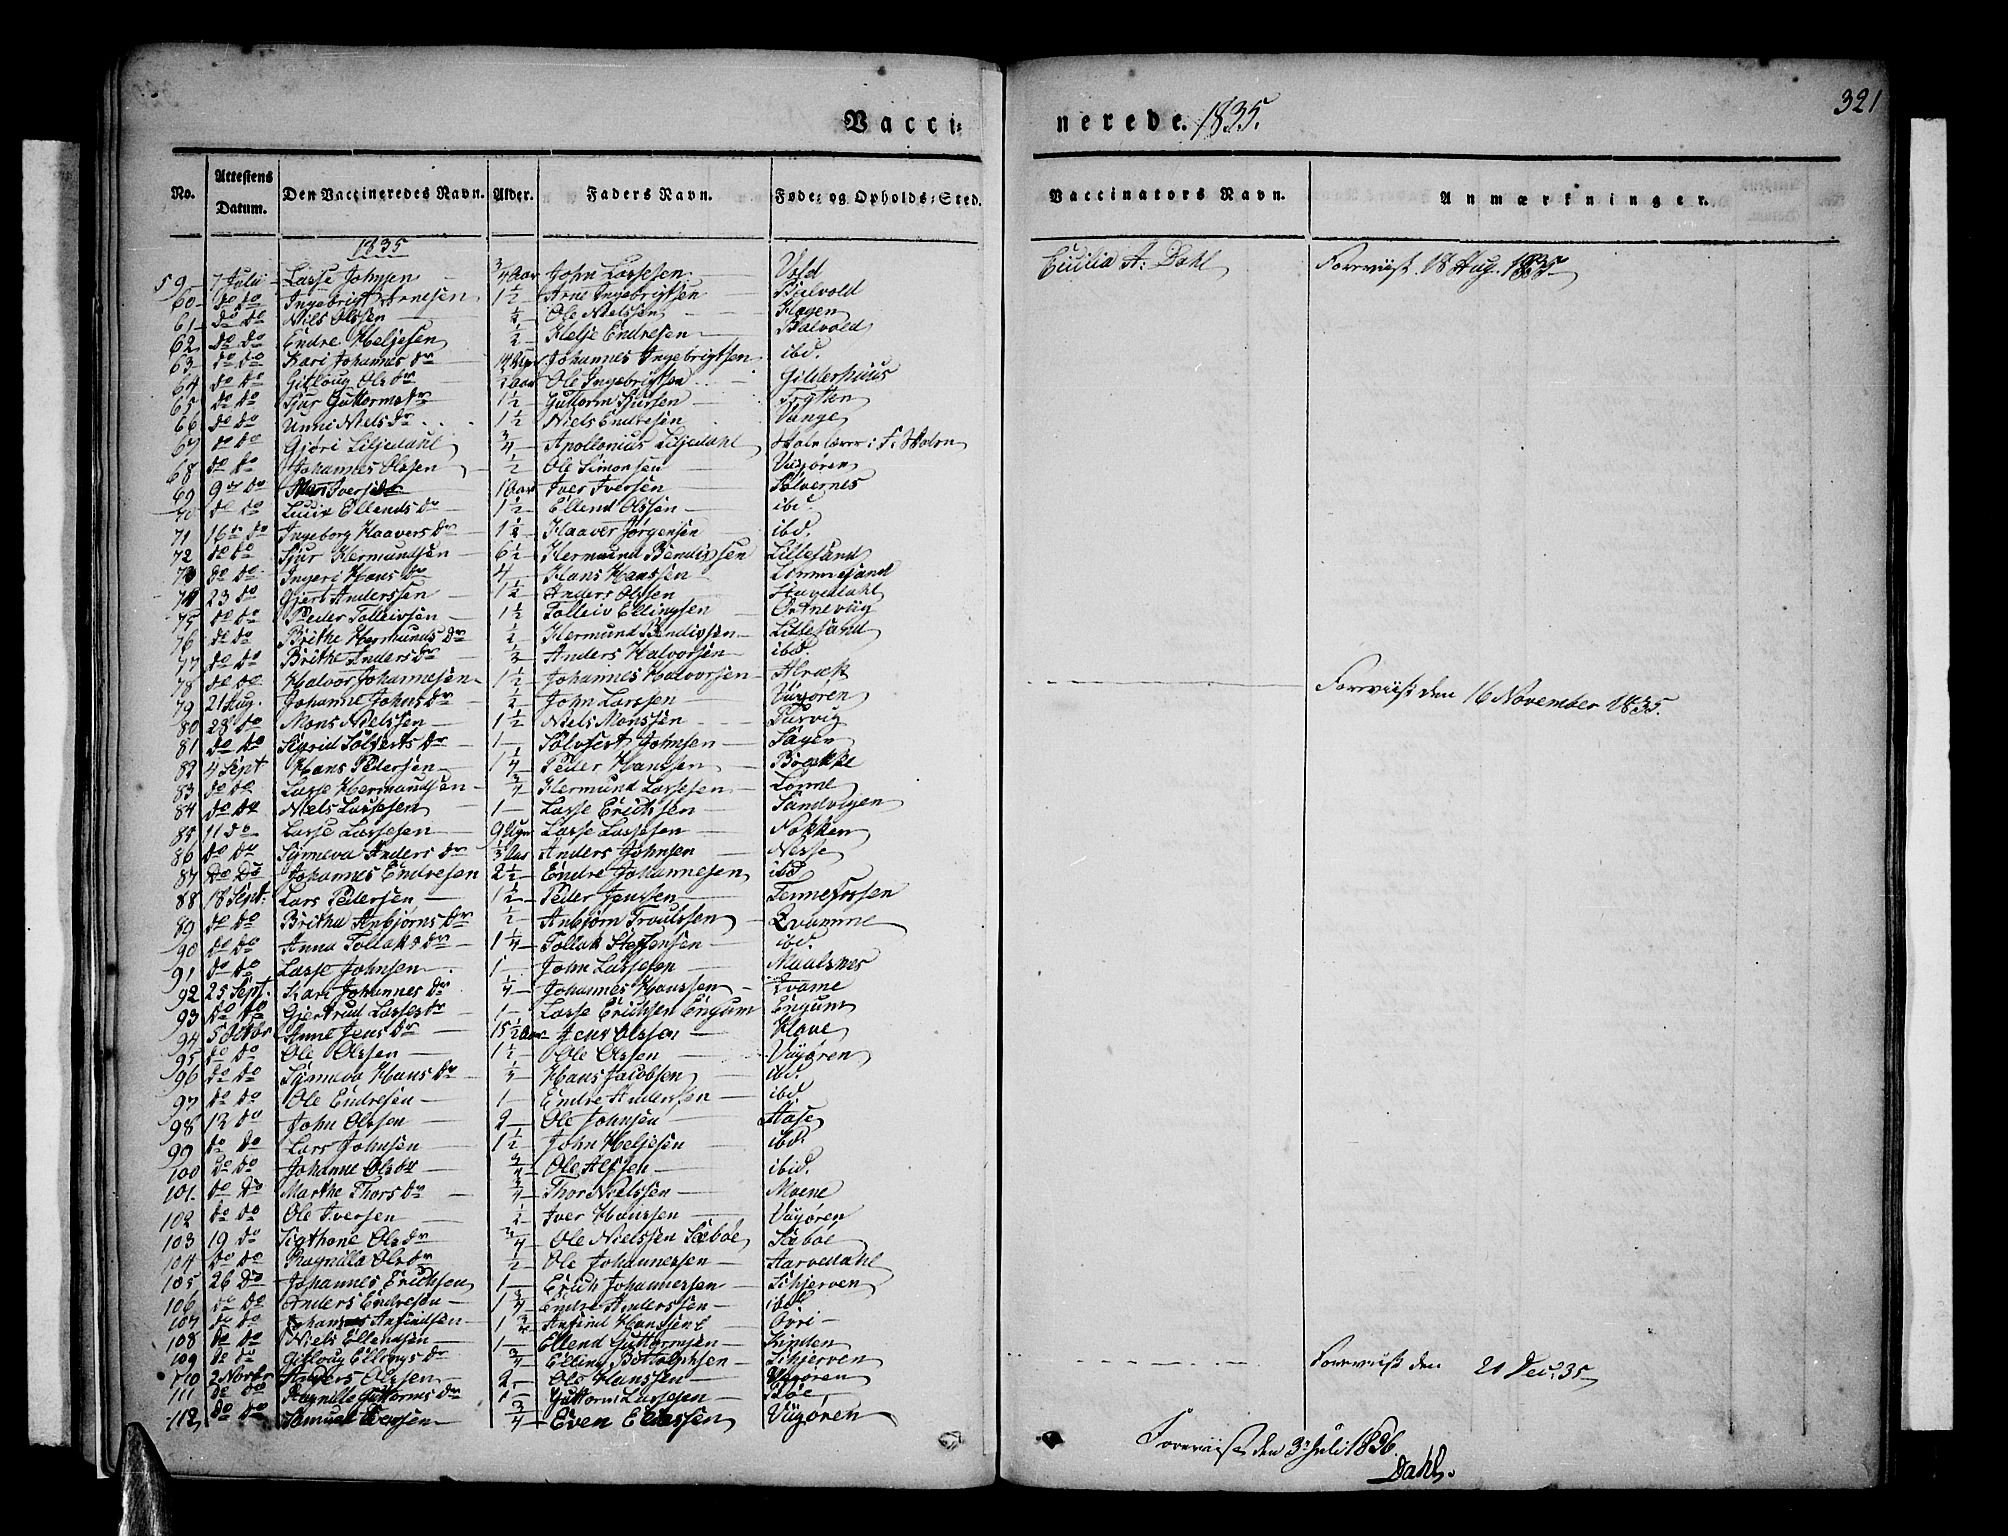 Vacci= nerede. 1835.
321
No. Attestens Datum. Den Vaccineredes Navn. Alder. Faders Navn. Føde= og Opholds=Sted. Vaccinators Navn. Anmærkninger.
1835
59 7 Julii Lasse Johnsen 3/4 Aar John Lassesen Vold Cecilia A: Dahl Foreviist 18 Aug. 1835
60 do do Ingebrigt Arnesen 1 1/2 Arne Ingebrigtsen Balvold
61 do do Niels Olssen 1/2 Ole Nielssen Hagen
62 do do Endre Heljesen 1/2 Helje Endresen Balvold
63 do do Kari Johannes dr Johannes Ingebrigtsen ibd.
64 do do Gitloug Ols dr Aar Ole Ingebrigtsen Gilderhuus
65 do do Sjur Guttorms dr 1 1/2 Guttorm Sjursen
66 do do Unni Niels dr 1 1/2 Niels Endresen Vange
67 do do Gjøri Liljedahl 3/4 Apollonius Liljedahl Skolelærer i F. Skolen
68 do do Johannes Olssen 1/2 Ole Simonsen Viigøren
69 9 do Iversdr 1 Aar Iver Iversen Sølvernes
70 do do Ellends dr 1 1/2 Ellend Olssen ibd.
71 16 do Ingeborg Haavers dr 1 1/2 Haaver Jørgensen ibd.
72 do do Sjur Hermundsen 6 1/2 Hermund Bendixsen Lillesand
73 do do Ingeri Hans dr 4 Hans Hanssen Lommesand
74 23 do Gjert Anderssen 1 1/2 Anders Olssen
75 do do Peder Tolleivsen 1 1/2 Tolleiv Ellingsen Ortneviig
76 do do Brithe Hermunds dr 1/2 Hermund Bendixsen Lillesand
77 do do Brithe Anders dr 1/2 Anders Halvorsen ibd.
78 do do Halvor Johannesen 1 1/2 Johannes Halvorsen Alræk
79 21 Aug. Johanne Johns dr 1/2 John Larssen Viigøren Foreviist den 16 November 1835.
80 28 do Mons Nielssen 1 1/2 Niels Monssen
81 do do Sigrid Sølfests dr 1 Sølfest Johnsen
82 4 Sept Hans Pedersen 1 1/4 Peder Hanssen Brække
83 do do Lasse Hermundsen 3/4 Hermund Lassesen
84 do do Niels Lassesen 1 Lasse Erichsen Sandvigen
85 11 do Lasse Lassesen 9 Uger Lasse Lassesen Nokken
86 do do Synneva Anders dr Aar Anders Johnsen Nesse
87 do do Johannes Endresen 2 1/2 Endre Johannesen ibd
88 18 Sept: Lars Pedersen 1 1/2 Peder Jenssen Tennefossen
89 do do Britha Anbjørns dr 1/2 Anbjørn Troulssen Qvamme
90 do do Anna Tollaks dr 1 1/4 Tollak Steffensen ibd.
91 do do Lasse Johnsen 1 John Lassesen Maalsnes
92 25 Sept. Kari Johannes dr 1/4 Johannes Hanssen Qvame
93 do do Gjertrud Lasses dr 1 Lasse Erichsen Engum Engum
94 5 Octbr Anne Jens dr 15 1/2 Aar Jens Olssen Hove
95 do do Ole Olssen 1 1/2 Ole Olssen Viigøren
96 do do Synneva Hans dr 1/2 Hans Jacobsen ibd.
97 do do Ole Endresen 1 Endre Anderssen ibd
98 12 do John Olssen 2 Ole Johnsen Aase
99 do do Lars Johnsen 1 1/2 John Heljesen ibd.
100 do do Johanne Ols dr 3/4 Ole Alfsen ibid.
101. do do Marthe Thors dr 3/4 Thor Nielssen Moene
102 do do Ole Iversen 1/2 Iver Hanssen Viigøren
103 19 do Ols dr 3/4 Ole Nielssen Sæbøe Sæbøe
104 do do Ragnilla Ols dr 1/2 Ole Johannessen Aarvedahl
105 26 do Johannes Erichsen 1 Erich Johannessen Schjerven
106 do do Anders Endresen 1 3/4 Endre Anderssen ibd
107 do do Johannes Anfindsen 1 3/4 Anfind Hanssen Øvri
108 do do Niels Ellendsen 1 Ellend Guttormsen Kinden
109 do do Gitloug Ellings dr 3/4 Elling Bottolphsen Schjerven Foreviist den 21 Dec. 35
110 2 Novbr Anders Olssen 2 Ole Hanssen Viigøren
111 do do Ragnille Guttorms dr 1 Guttorm Lassesen Bøe
112 do do Samuel Evensen 3/4 Even Viigøren
Foreviist den 3 Juli 1836.
Dahl.